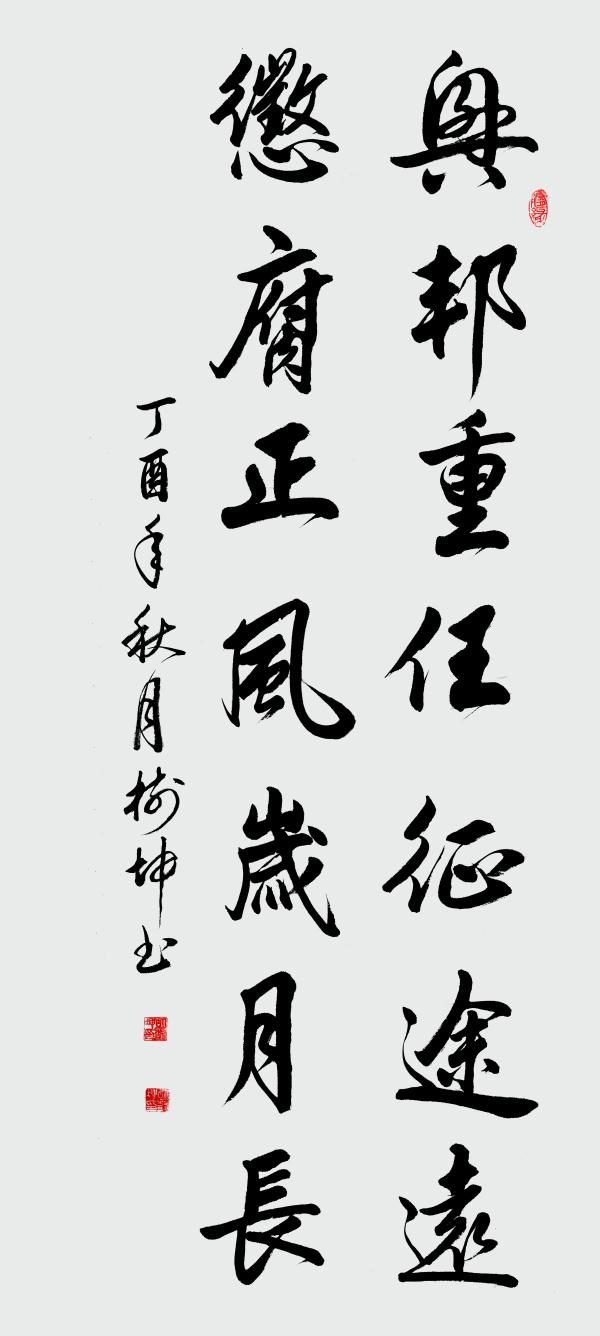 興邦重任征途遠
懲腐正風歲月長
丁酉年秋月樹坤书